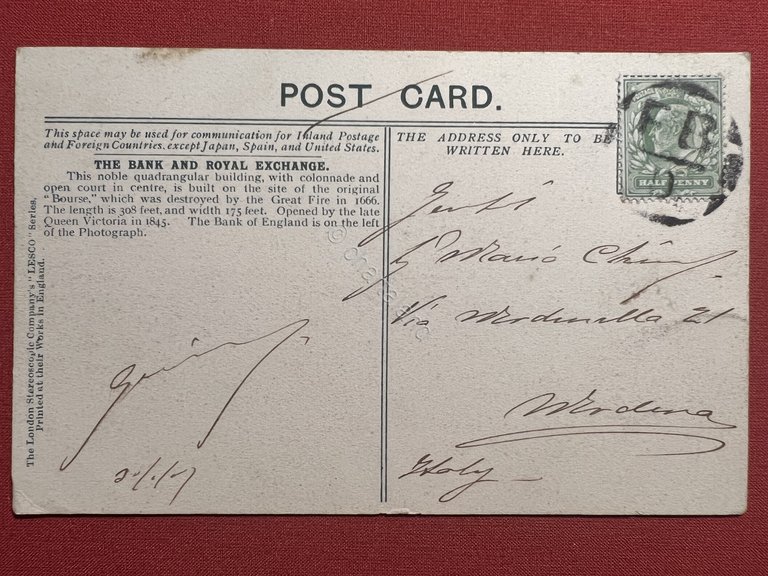 POST CARD.
This space may be used for communication for Inland Postage
and Foreign Countries, except Japan, Spain, and United States.
THE BANK AND ROYAL EXCHANGE.
This noble quadrangular building, with colonnade and
open court in centre, is built on the site of the original
"Bourse," which was destroyed by the Great Fire in 1666.
The length is 308 feet, and width 175 feet. Opened by the late
Queen Victoria in 1845. The Bank of England is on the left
of the Photograph.
The London Stereoscopic Company's "LESCO" Series,
Printed at their Works in England.
THE ADDRESS ONLY TO BE
WRITTEN HERE.
HALFPENNY
Mario
Via 21
Modena
Italy